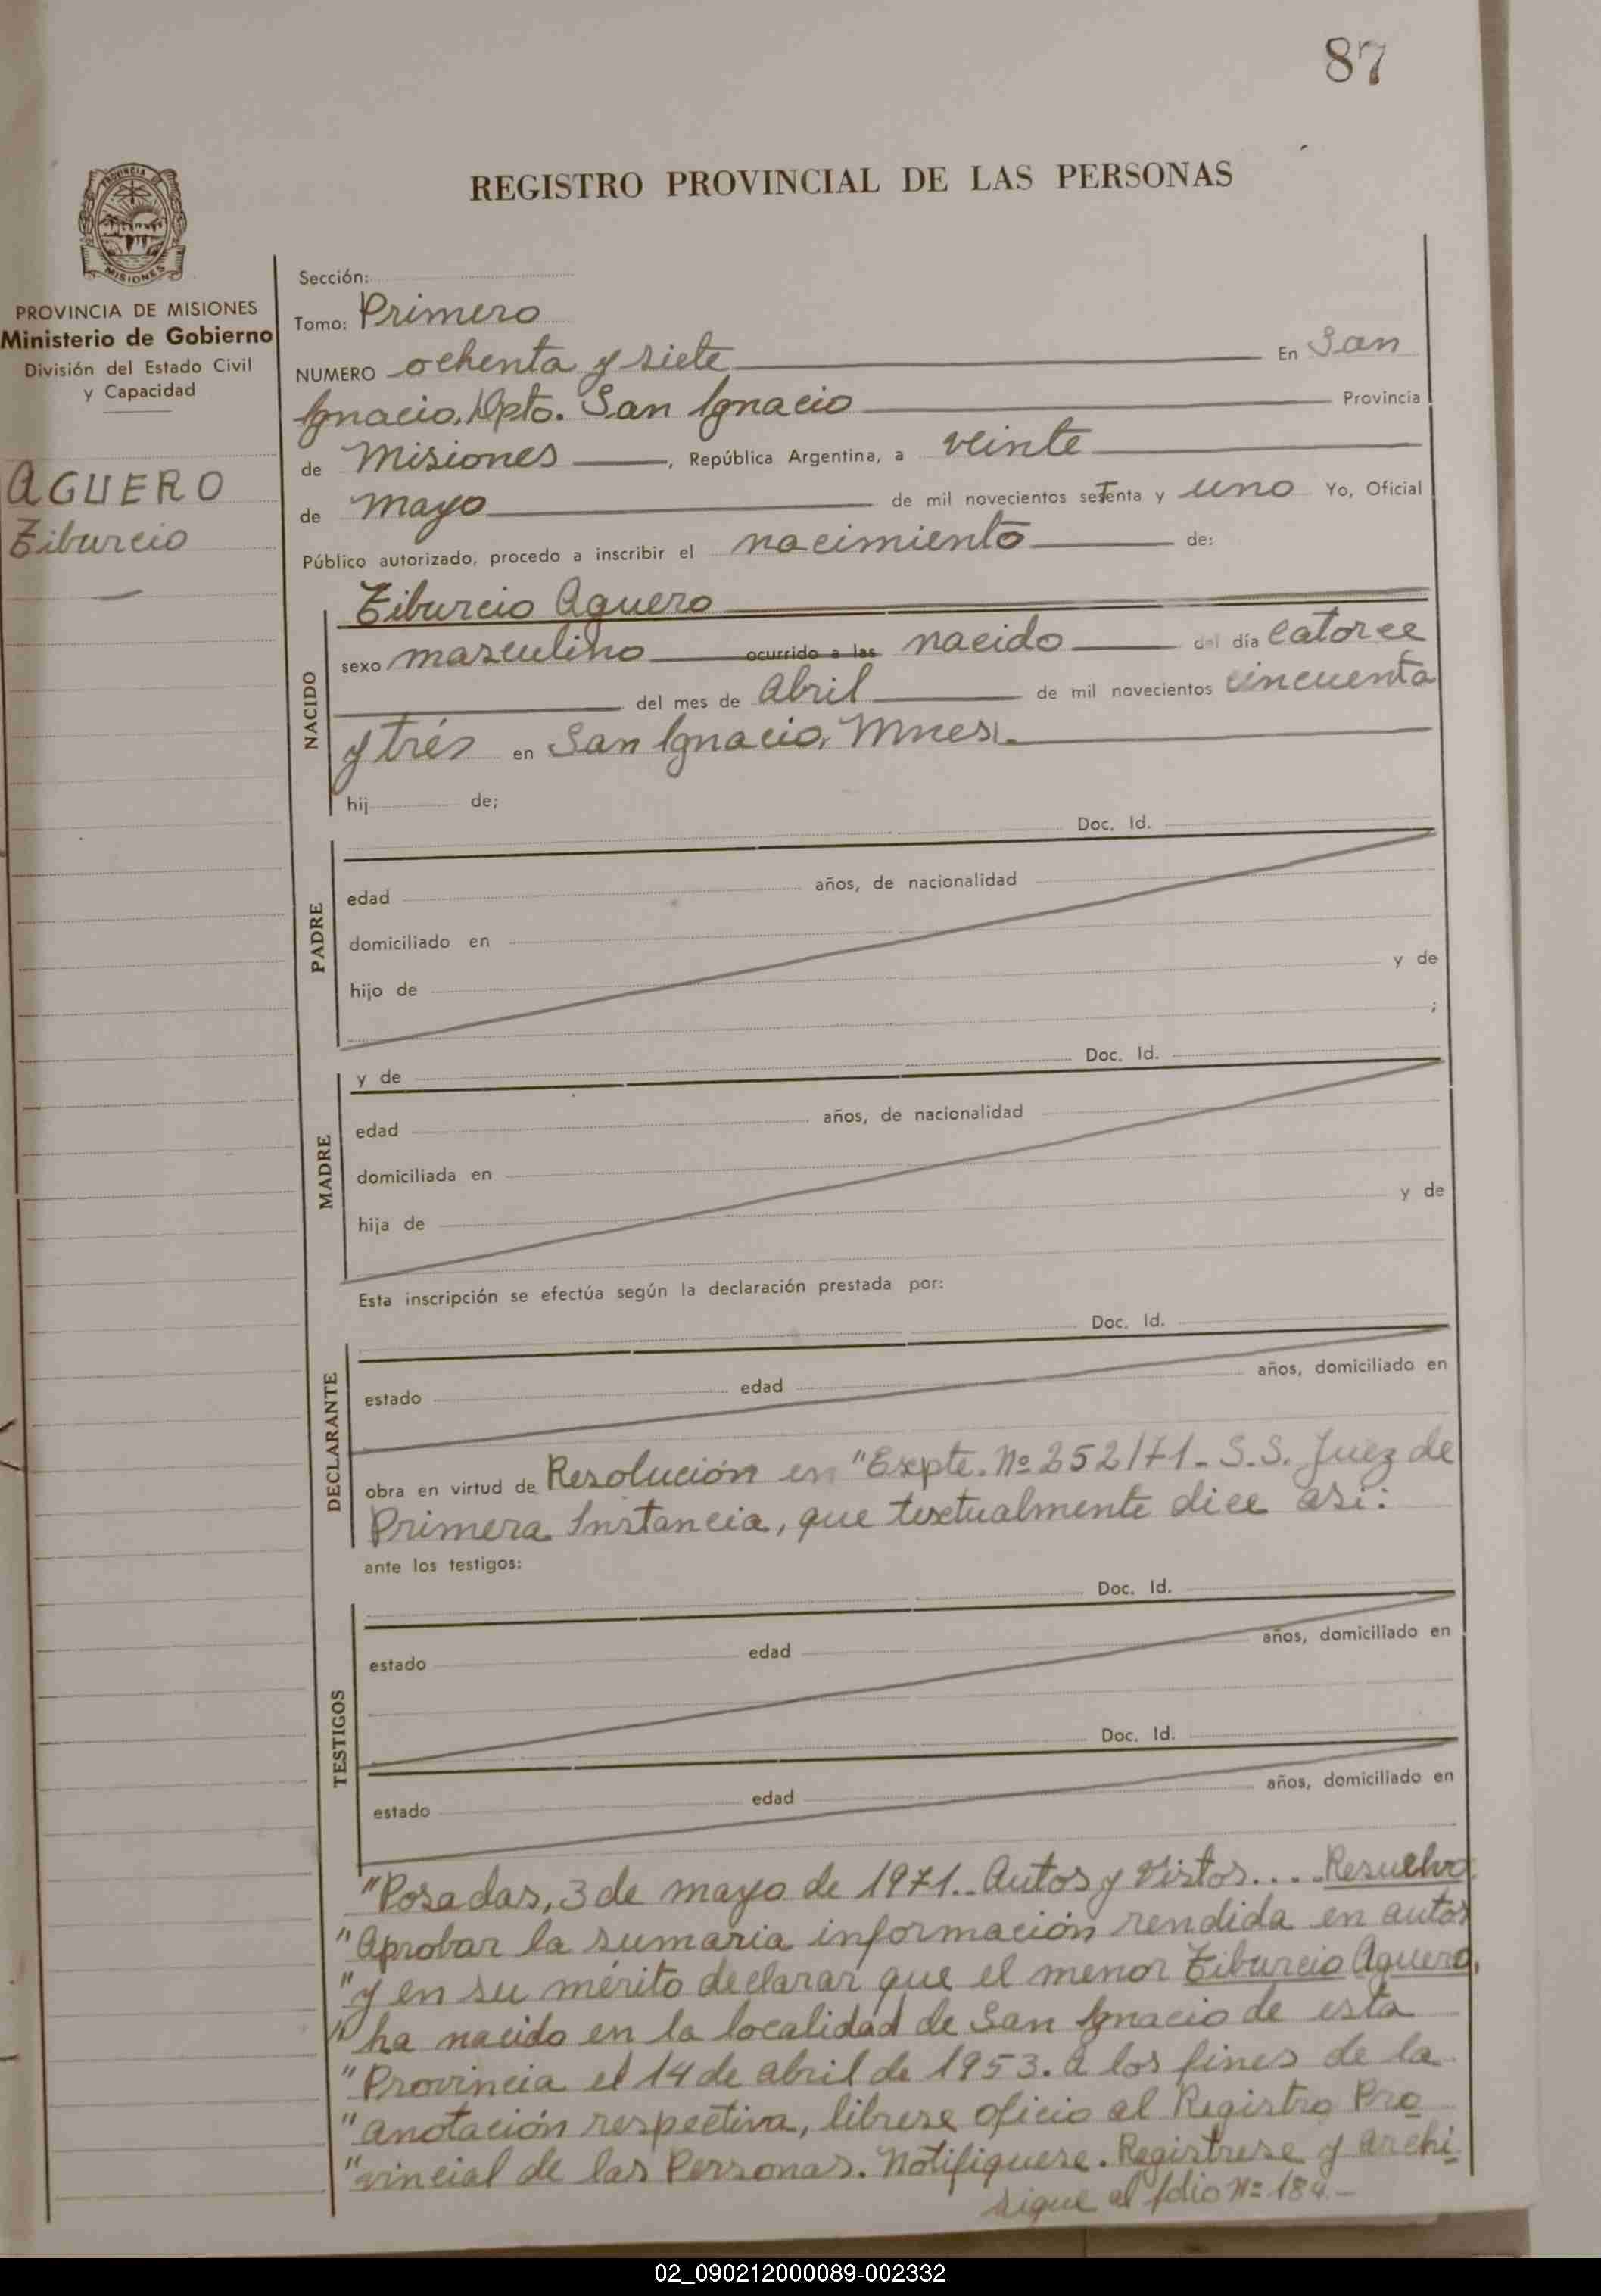 87
REGISTRO PROVINCIAL DE LAS PERSONAS
PROVINCIA DE
MISIONES
PROVINCIA DE MISIONES
Ministerio de Gobierno
División del Estado Civil
y Capacidad
AGUERO
Tiburcio
Sección:
Tomo: Primero
NUMERO ochenta y siete En San
Ignacio, Dpto. San Ignacio Provincia
de Misiones, República Argentina, a veinte
de mayo de mil novecientos setenta y uno Yo, Oficial
Público autorizado, procedo a inscribir el nacimiento de:
NACIDO
Tiburcio Aguero
sexo masculino ocurrido a las nacido del día catorce
del mes de Abril de mil novecientos cincuenta
y trés en San Ignacio, Mnes.
hij de;
PADRE
Doc. Id.
edad años, de nacionalidad
domiciliado en
hijo de y de
;
MADRE
y de Doc. Id.
edad años, de nacionalidad
domiciliada en
hija de y de
Esta inscripción se efectúa según la declaración prestada por:
DECLARANTE
Doc. Id.
estado edad años, domiciliado en
obra en virtud de Resolución en "Expte. Nº 252/71- S.S. Juez de
Primera Instancia, que textualmente dice así:
ante los testigos:
TESTIGOS
Doc. Id.
estado edad años, domiciliado en
Doc. Id.
estado edad años, domiciliado en
"Posadas, 3 de mayo de 1971. Autos y Vistos.... Resuelvo
"Aprobar la sumaria información rendida en autos
"y en su mérito declarar que el menor Tiburcio Aguero,
"ha nacido en la localidad de San Ignacio de esta
"Provincia el 14 de abril de 1953. A los fines de la
"anotación respectiva, librese oficio al Registro Pro
"vincial de las Personas. Notifiquese. Registrese y archi
sigue al folio Nº
02_090212000089-002332